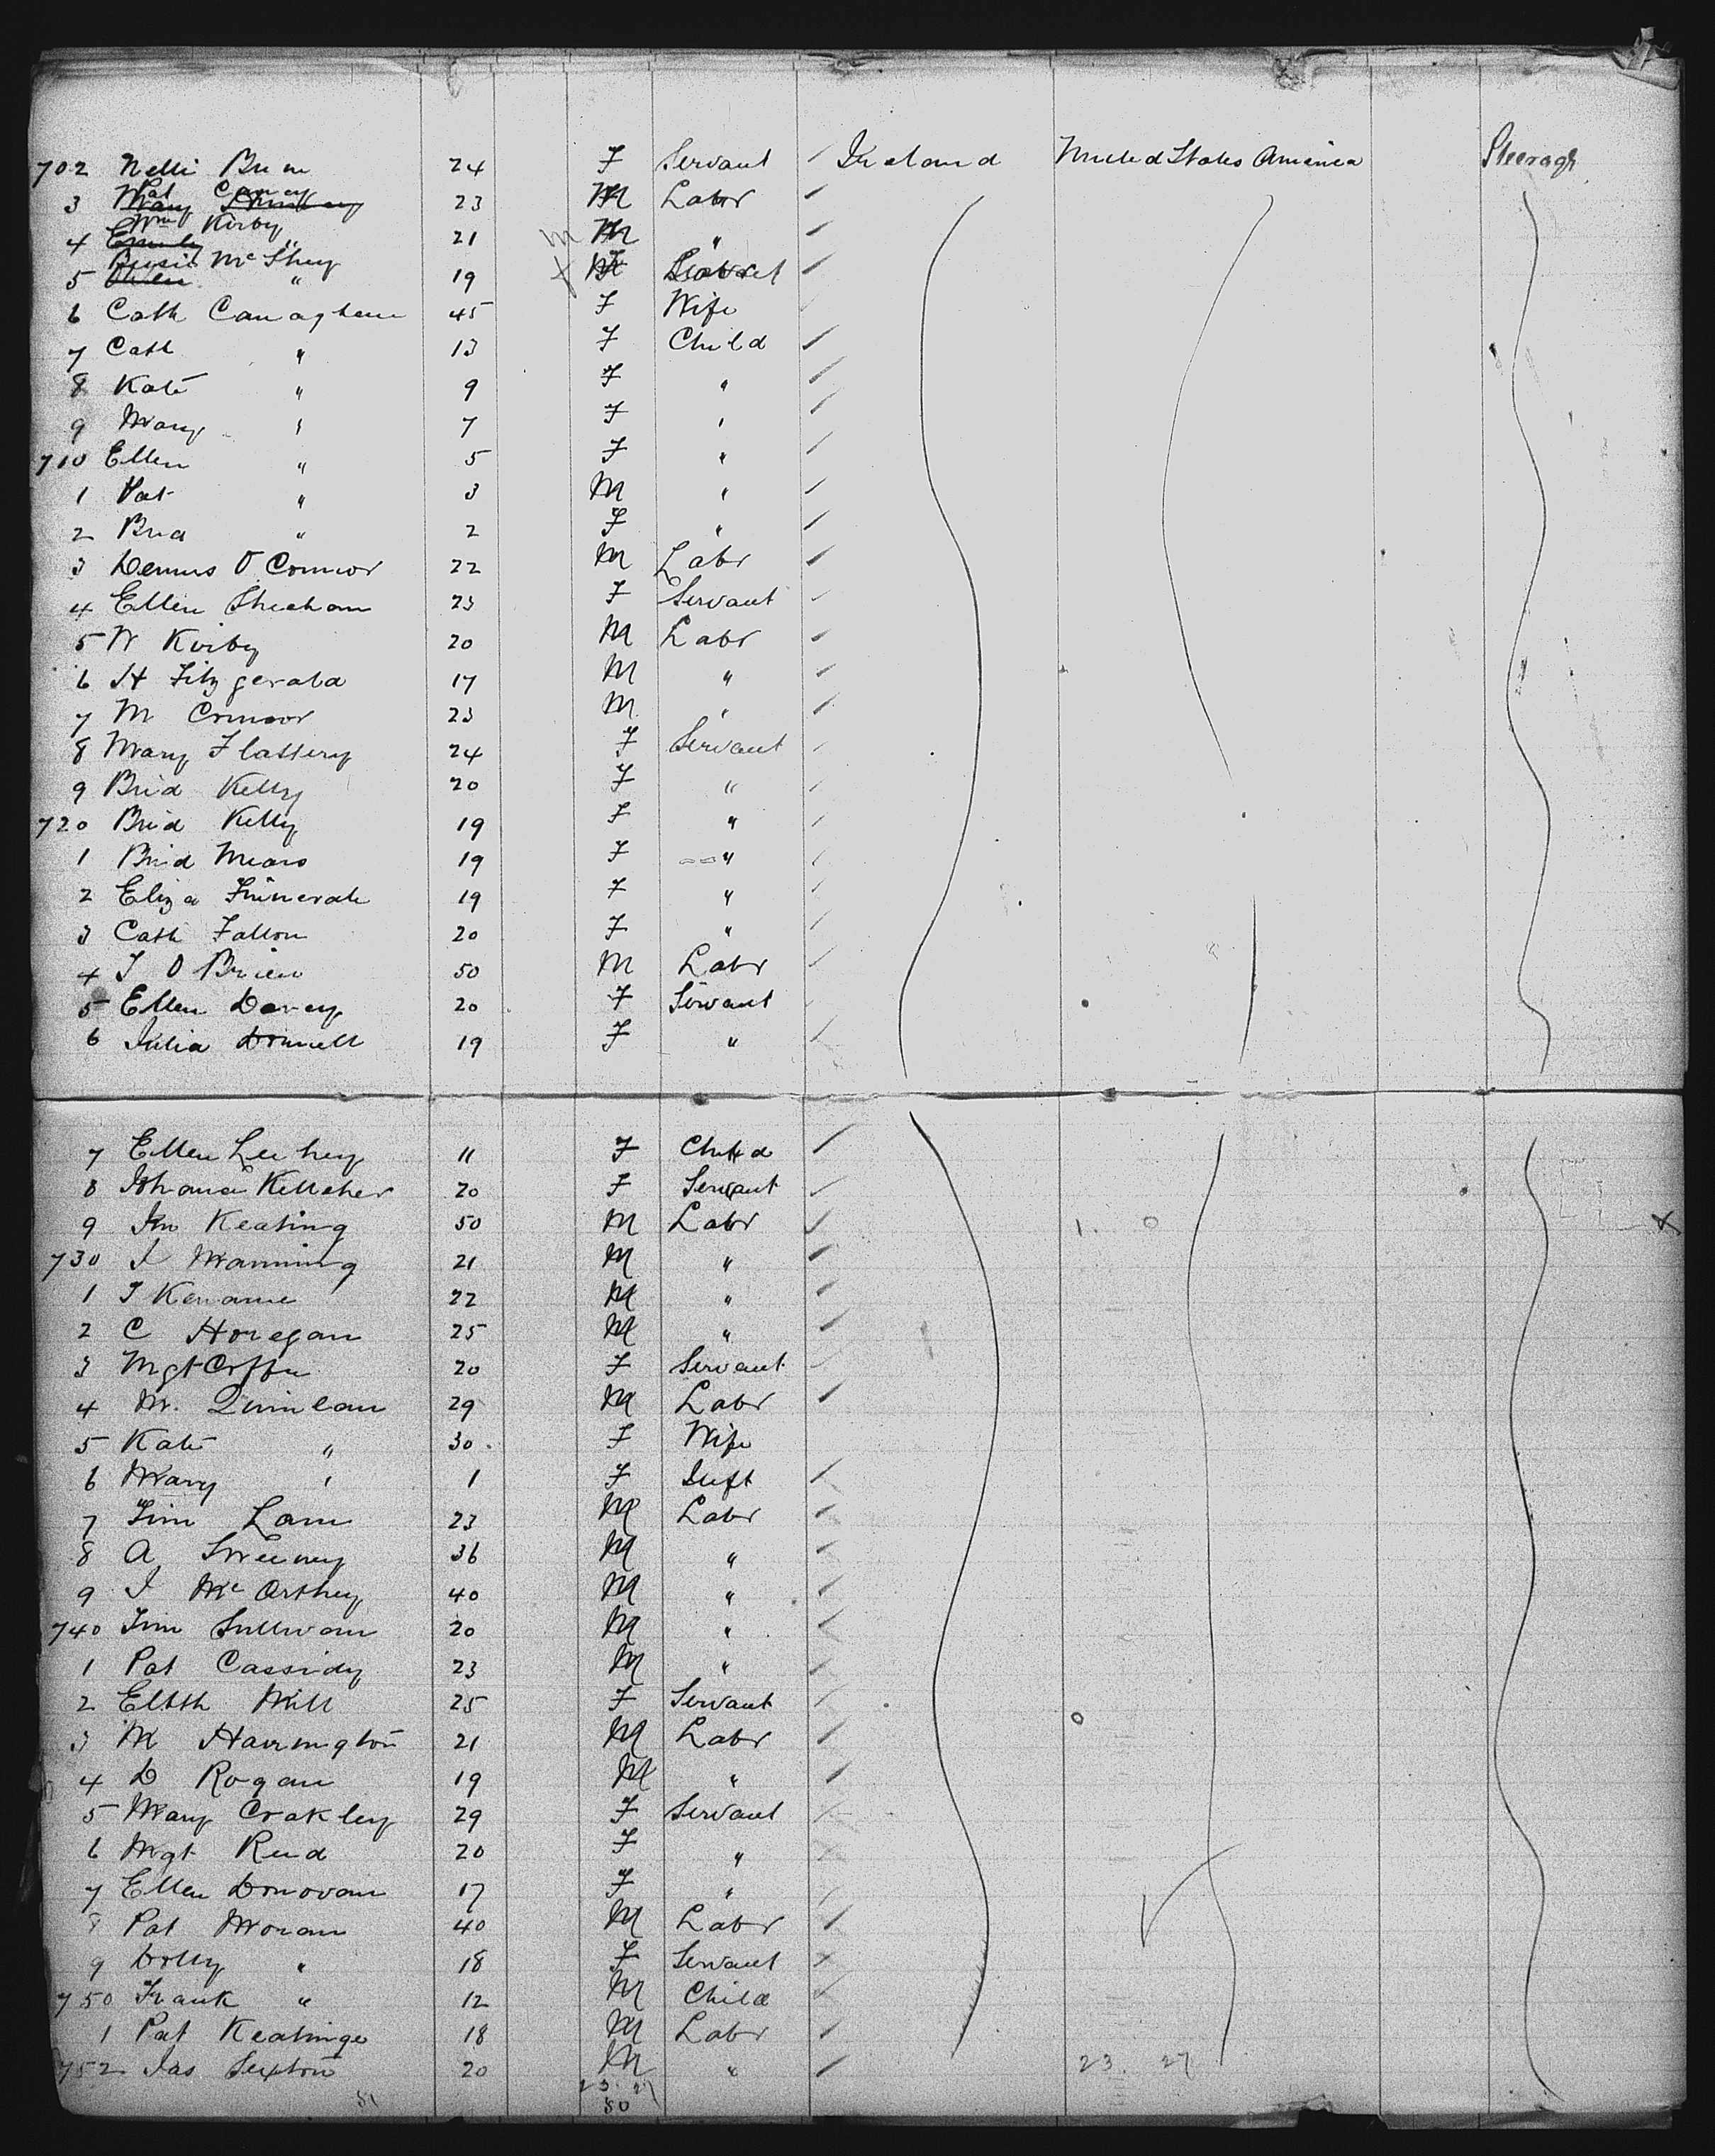 702 Nelli 24 F Servant Ireland United States America Steerage
3 Pat 23 M Labr
4 Wm Kirby 21 M "
5 Mc 19 F
6 Cath 45 F Wife
7 Cath " 13 F Child
8 Kate " 9 F "
9 Mary " 7 F "
710 Ellen " 5 F "
1 Pat " 3 M "
2 Brid " 2 F "
3 Dennis O Connor 22 M Labr
4 Ellen Sheehan 23 F Servant
5 W Kirby 20 M Labr
6 H Fitzgerald 17 M "
7 M Connor 23 M "
8 Mary Flattery 24 F Servant
9 Brid Kelly 20 F "
720 Brid Kelly 19 F "
1 Brid Mears 19 F "
2 Eliza 19 F "
3 Cath Fallon 20 F "
4 J O Brien 50 M Labr
5 Ellen Davey 20 F Servant
6 Julia Donnell 19 F "
7 Ellen Leehey 11 F Child
8 Johana Kelleher 20 F Servant
9 Jno Keating 50 M Labr
730 J Manning 21 M "
1 J 22 M "
2 C Horegan 25 M "
3 Mgt 20 F Servant
4 M. Quinlan 29 M Labr
5 Kate " 30 F Wife
6 Mary " 1 F Inft
7 Tim Lane 23 M Labr
8 A Sweeney 36 M "
9 J McCarthy 40 M "
740 Tim Sullivan 20 M "
1 Pat Cassidy 23 M "
2 Elbth Will 25 F Servant
3 M Harrington 21 M Labr
4 D Rogan 19 M "
5 Mary Coakley 29 F Servant
6 Mgt Reid 20 F "
7 Ellen Donovan 17 F "
8 Pat Moran 40 M Labr
9 Dolly " 18 F Servant
750 Frank " 12 M Child
1 Pat Keatinge 18 M Labr
752 Jas Sexton 20 M " 23. 27
51 23. 27
50